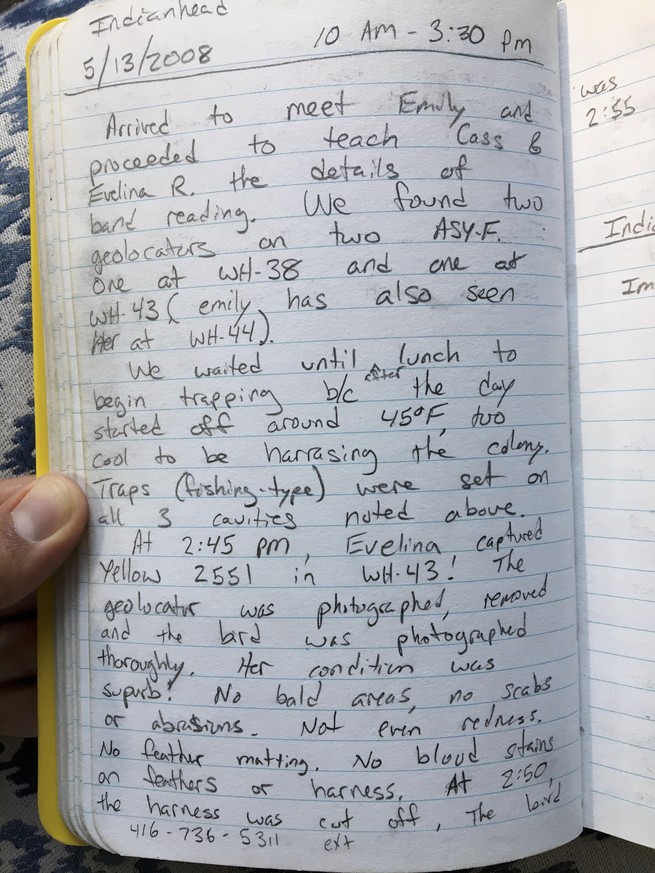 Indianhead
5/13/2008 10 AM - 3:30 pm
Arrived to meet Emily and
proceeded to teach Cass &
Evelina R. the details of
band reading. We found two
geolocators on two ASY-F.
One at WH-38 and one at
WH-43 (emily has also seen
Her at WH-44).
We waited until after lunch to
begin trapping b/c the day
started off around 45°F, too
cool to be harrasing the colony.
Traps (fishing-type) were set on
all 3 cavities noted above.
At 2:45 pm, Evelina captured
Yellow 2551 in WH-43! The
geolocator was photographed, removed
and the bird was photographed
thoroughly. Her condition was
supurb! No bald areas, no scabs
or abrasions. Not even redness.
No feather matting. No blood stains
on feathers or harness. At 2:50,
the harness was cut off, The bird
416-736-5311 ext
was
2:55
Indi
Im